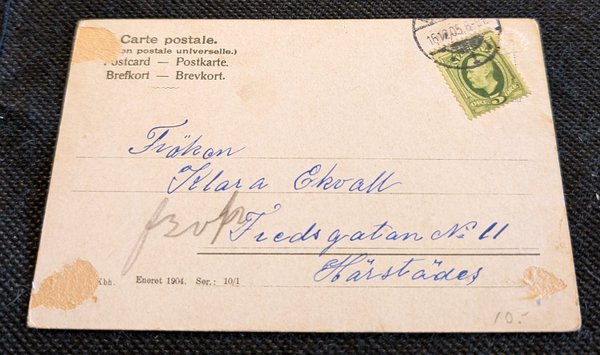 Carte postale.
on postale universelle.)
Postcard — Postkarte.
Brefkort — Brevkort.
5 ÖRE 5
Fröken
Klara Ekvall
Fredsgatan No 11
Härstädes
Kbh. Eneret 1904. Ser.: 10/1
10.-